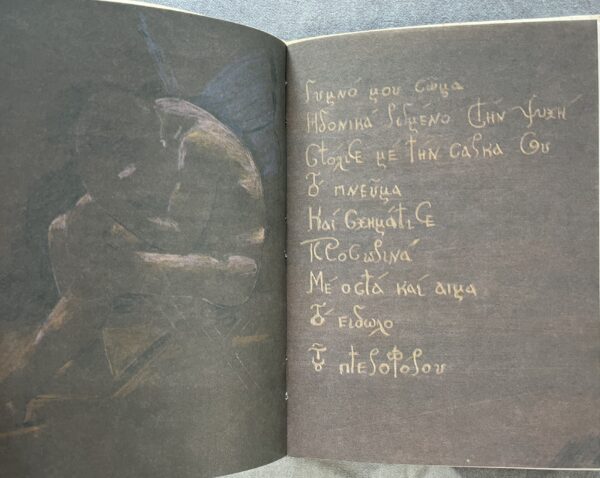 Γυμνό μου σώμα
Ηδονικά δεμένο στήν ψυχή
Στόλισε μέ τήν σαρκα σου
Τό πνεῦμα
Καί σχημάτισε
Προσωρινά
Μέ οστά καί αιμα
Τό ειδωλο
Τοῦ πτεροφόρου